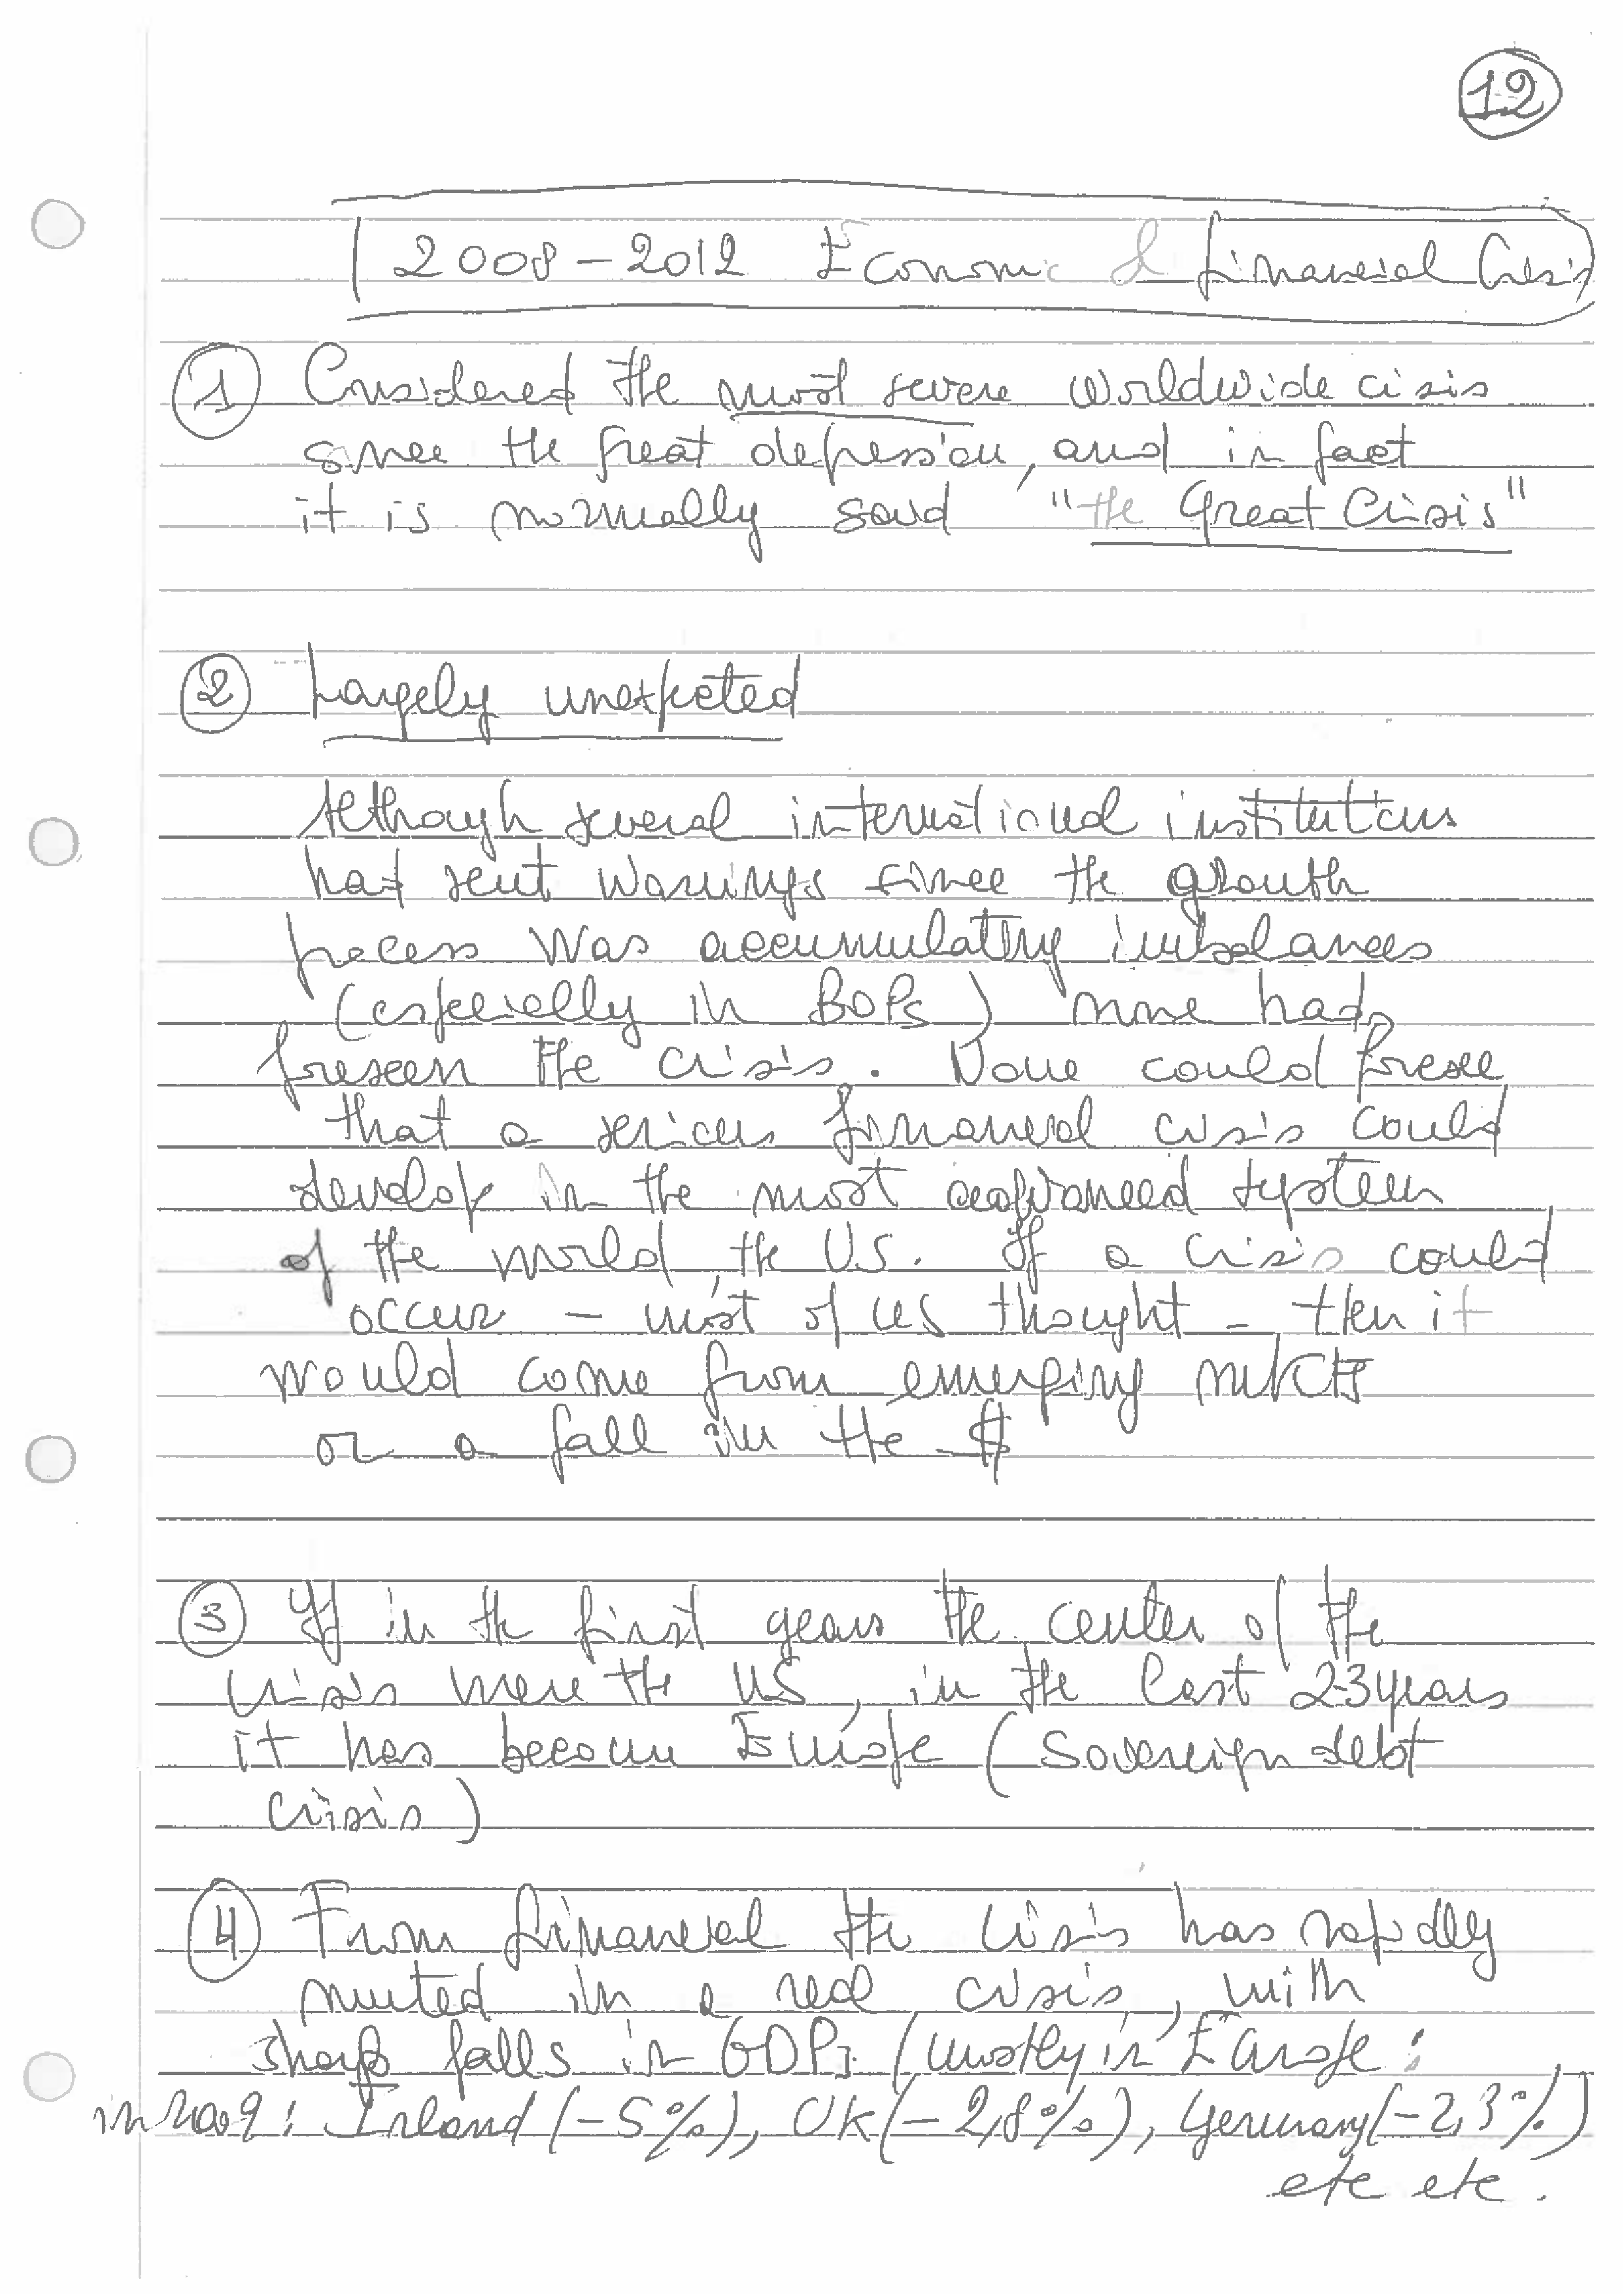 12
2008-2012 Economic & Financial Crisis
1 Considered the most severe worldwide crisis
since the great depression, and in fact
it is normally said "the Great Crisis"
2 Largely unexpected
Although several international institutions
had sent warnings since the growth
process was accumulating imbalances
(especially in BOPs) none had
foreseen the crisis. None could foresee
that a serious financial crisis could
develop in the most advanced system
of the world, the U.S. If a crisis could
occur - most of us thought - then it
would come from emerging mkts
or a fall in the $
3 If in the first years the center of the
crisis were the US, in the last 2-3 years
it has become Europe (Sovereign debt
crisis)
4 From financial the crisis has rapidly
muted in a real crisis, with
sharp falls in GDPs (mostly in Europe:
in 2009: Irland (-5%), UK (-2,8%), Germany (-2,3%)
etc etc.